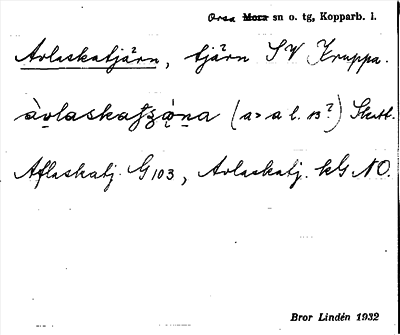 Orsa Mora sn o. tg, Kopparb. l.
Avlaskatjärn, tjärn SV Kruppa.
(a > a l. B?) Skattl.
Aflaskatj. G103, Avlaskatj. kG NO.
Bror Lindén 1932